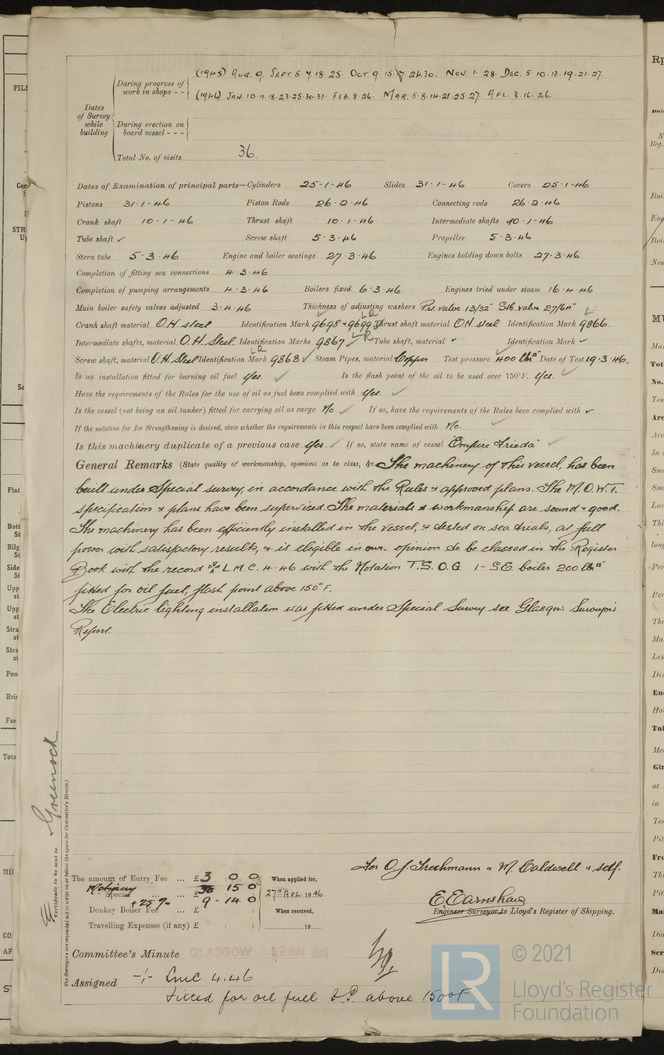 (1945) Aug. 9. Sept. 5 7 18. 25. Oct. 9. 15. 26. 30. Nov. 1. 28. Dec. 5. 10. 13. 19. 21. 27.
During progress of work in shops - -
(1946) Jan. 10. 11. 18. 23. 25. 30. 31. Feb. 8. 26. Mar. 5. 8. 14. 21. 25. 27. Apl. 3. 16. 26.
Dates of Survey while building
During erection on board vessel - - -
Total No. of visits 36.
Dates of Examination of principal parts—Cylinders 25-1-46 Slides 31-1-46 Covers 25-1-46
Pistons 31-1-46 Piston Rods 26-2-46 Connecting rods 26-2-46
Crank shaft 10-1-46 Thrust shaft 10-1-46 Intermediate shafts 10-1-46
Tube shaft ✓ Screw shaft 5-3-46 Propeller 5-3-46
Stern tube 5-3-46 Engine and boiler seatings 27-3-46 Engines holding down bolts 27-3-46
Completion of fitting sea connections 4-3-46
Completion of pumping arrangements 4-3-46 Boilers fixed 6-3-46 Engines tried under steam 16-4-46
Main boiler safety valves adjusted 3-4-46 Thickness of adjusting washers Port valve 13/32" Stb. valve 27/64"
Crank shaft material O.H. steel Identification Mark 9698 & 9699 Thrust shaft material O.H. steel Identification Mark 9866.
Intermediate shafts, material O.H. Steel. Identification Marks 9867 Tube shaft, material ✓ Identification Mark ✓
Screw shaft, material O.H. Steel Identification Mark 9868 Steam Pipes, material Copper Test pressure 400 lbs" Date of Test 19-3-46.
Is an installation fitted for burning oil fuel Yes. Is the flash point of the oil to be used over 150°F. Yes
Have the requirements of the Rules for the use of oil as fuel been complied with Yes.
Is the vessel (not being an oil tanker) fitted for carrying oil as cargo No If so, have the requirements of the Rules been complied with ✓
If the notation for Ice Strengthening is desired, state whether the requirements in this respect have been complied with No.
Is this machinery duplicate of a previous case Yes If so, state name of vessel "Empire Frieda"
General Remarks (State quality of workmanship, opinions as to class, &c. The machinery of this vessel, has been
built under Special survey, in accordance with the Rules & approved plans. The M.O.W.T.
specification & plans have been supervized. The materials & workmanship are sound & good.
The machinery has been efficiently installed in the vessel, & tested on sea trials, at full
power with satisfactory results, & is eligible in our opinion to be classed in the Register
Book with the record L.M.C. 4-46 with the Notation T.S.O.G 1-SE boiler 200 lbs"
fitted for oil fuel, flash point above 150°F.
The Electric lighting installation was fitted under Special Survey see Glasgow Surveyors
Report.
Greenock
Certificate to be sent to
(The Surveyors are requested not to write on or below the space for Committee's Minute.)
The amount of Entry Fee ... £ 3 : 0 : 0 When applied for,
Special ... £ 15 0 27th Apl. 1946
+ 25%
Donkey Boiler Fee ... £ 9 - 14 0 When received,
Travelling Expenses (if any) £ : : 19
For O.J. Freshmann & M. Caldwell & self.
E Earnshaw
Engineer Surveyor to Lloyd's Register of Shipping.
Committee's Minute GLASGOW
Assigned LMC 4.46
Fitted for oil fuel F.P. above 150°F
LR © 2021
Lloyd's Register
Foundation